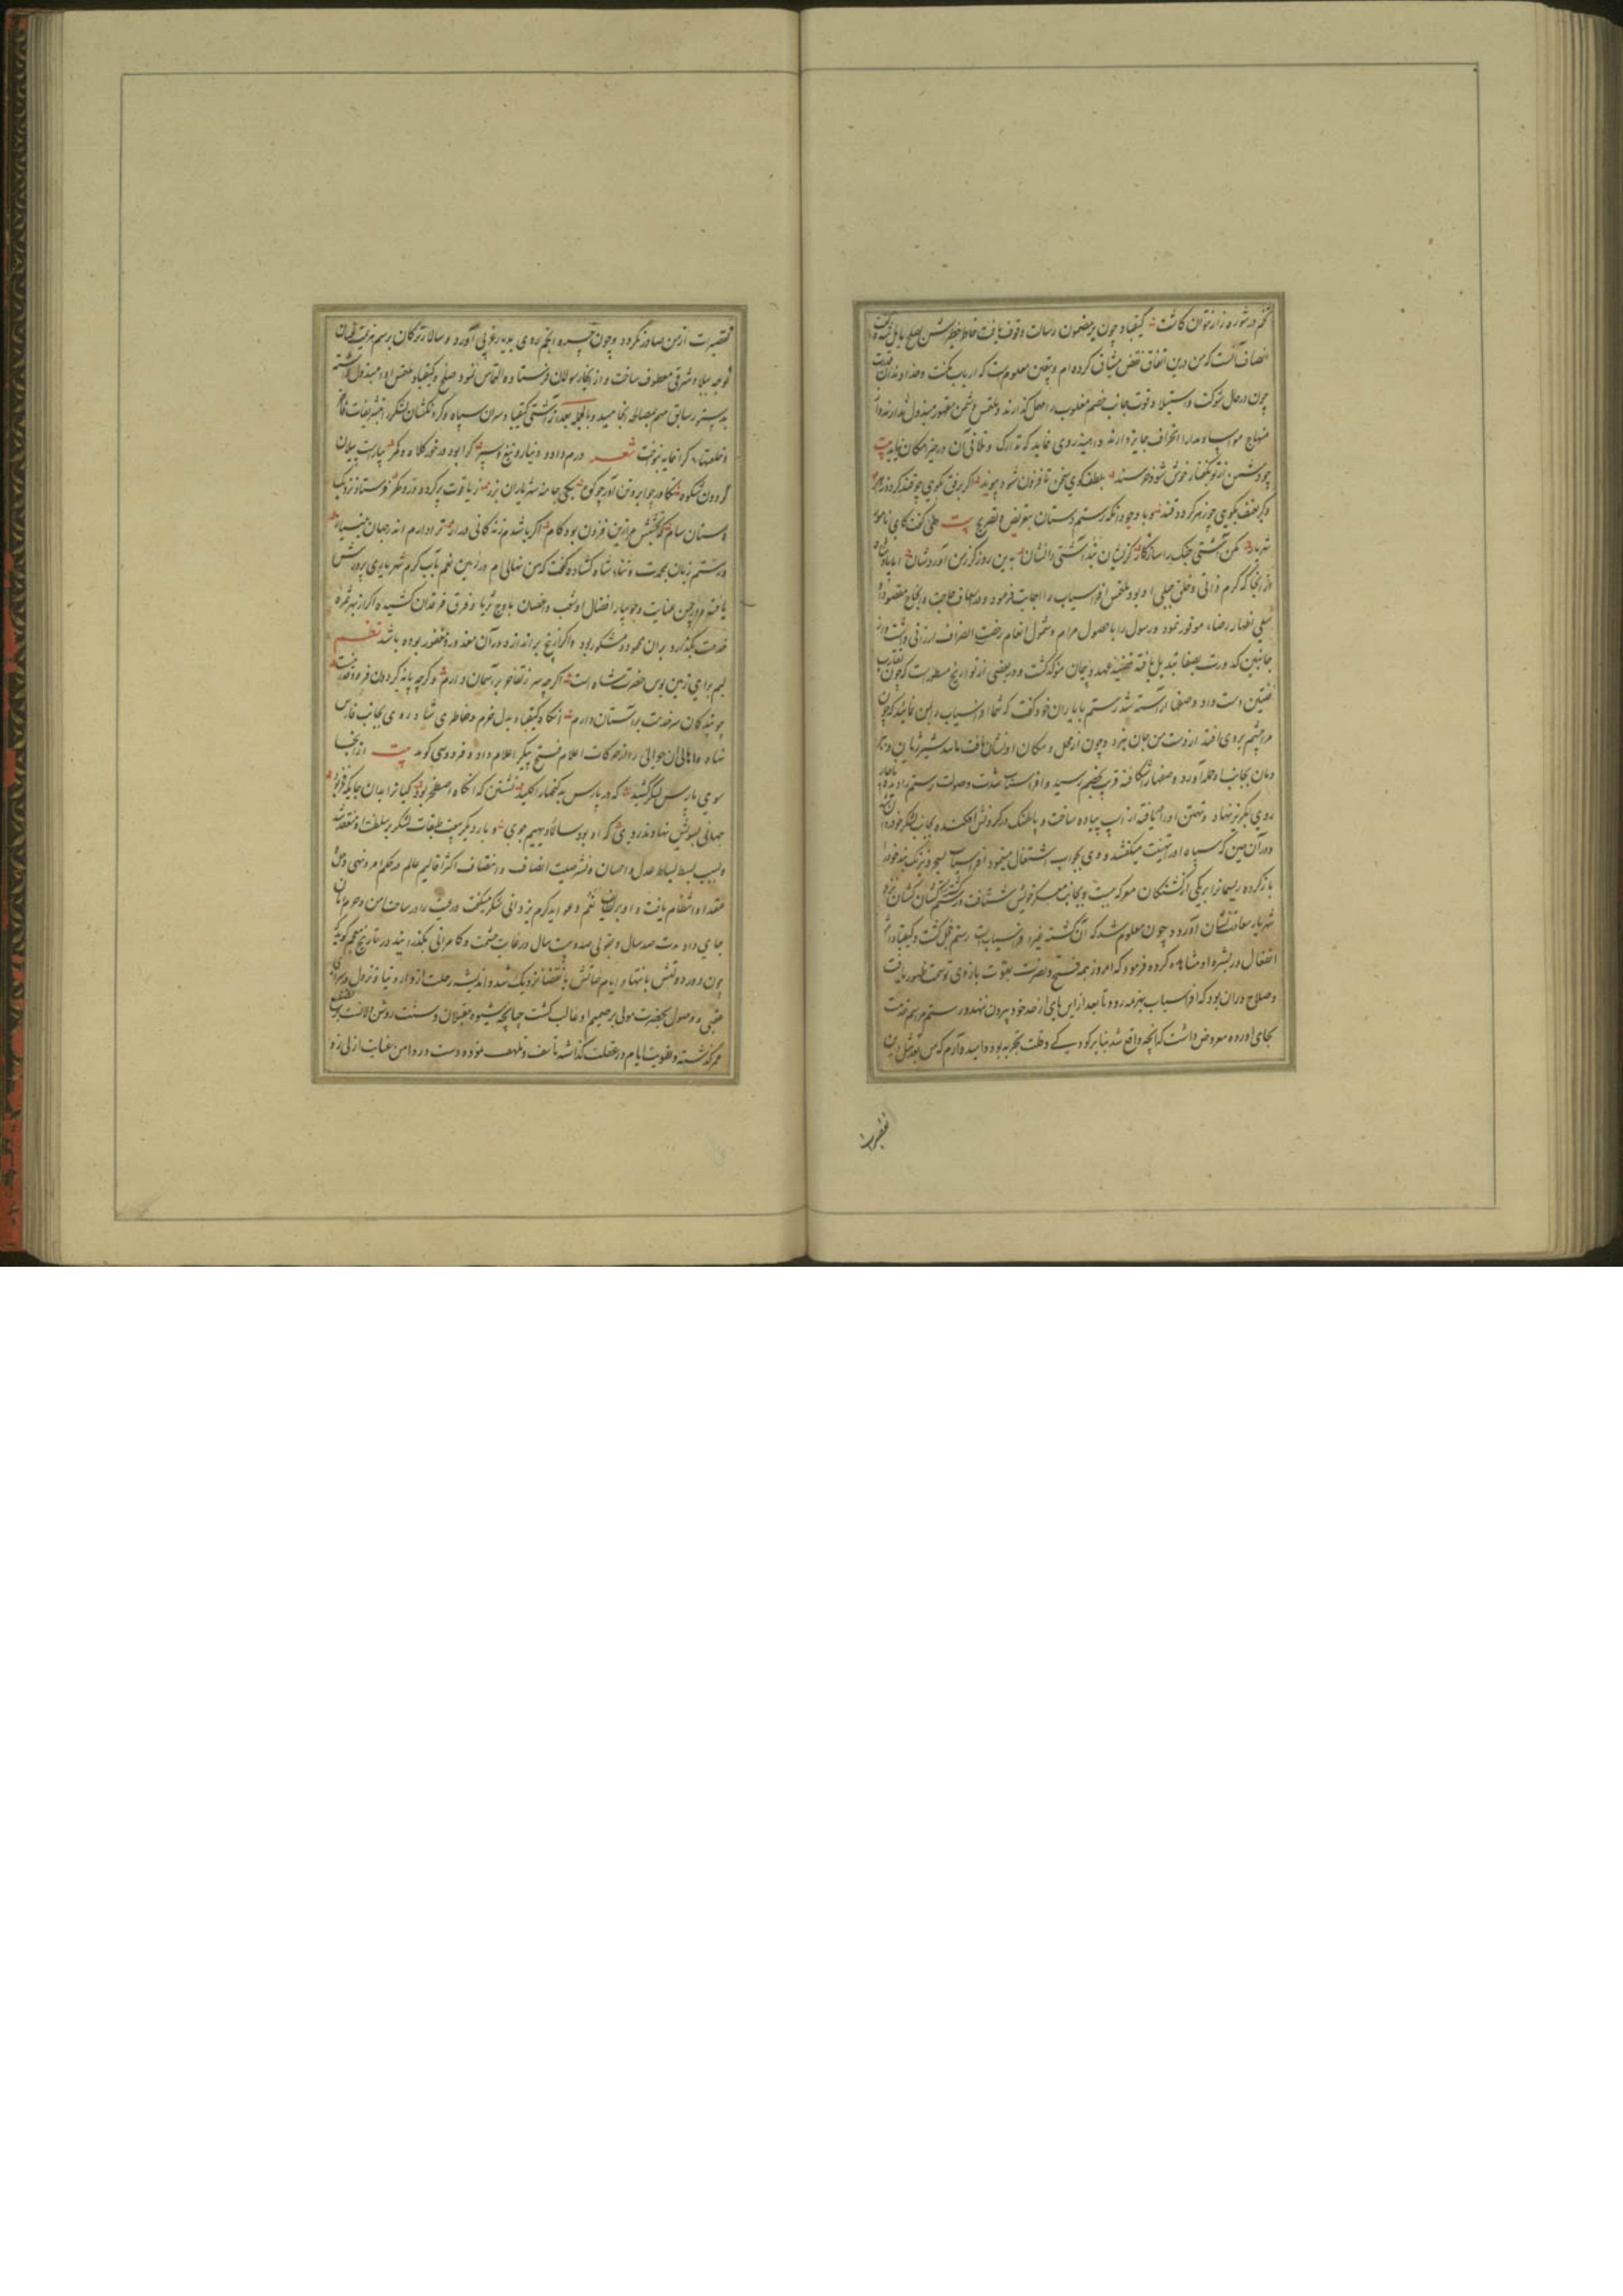 تخم در شوره زار نتوان کاشت کیقباد چون بر مضمون رسالت وقوف یافت خاطر خطیرش بصلح مایل شد
انصاف آنست که من درین اتفاق نقض میثاق کرده ام و یقین معلومست که ارباب مکنت و خداوندان
چون در حال شوکت و استیلا و قوت جانب خصم مغلوب را مهمل گذارند و ملتمس دشمن مقهور مبذول ندارند و از
منهاج مواسا و مدارا انحراف جایز دارند روی نماید که تدارک و تلافی آن در حیز امکان نیاید بیت
چو دشمن از تو بگفتار خوش شود خرسند بلطف گوی سخن تا فزون شود پیوند اگر برفق گویی چو قند گردد زهر
وگر بعنف بگویی چو زهر گردد قند و با وجود آنکه رستم دستان بتعریض و تصریح بیت همی گفت کای نامور
شهریار مکن آشتی جنگ را ساز کار کزیشان نبد آشتی را نشان بدین روز گرز من آوردشان اما پادشاه
از آنجا که کرم ذاتی و خلق جبلی او بود ملتمس افراسیاب را اجابت فرمود و در اسعاف حاجت و انجاح مقصود او
سعی نموده اظهار رضا موفور نمود و رسول را با حصول مرام و شمول انعام رخصت انصراف ارزانی داشت و از
جانبین کدورت بصفا تبدیل یافته قضیه عهد و پیمان موکد گشت و در بعضی از تواریخ مسطورست که چون
صفین دست داد و صفها آراسته شد رستم با یاران خود گفت که شما افراسیاب را بمن نمایند که چون
مرا چشم بروی افتد از دست من جان نبرد و چون از محل و مکان او نشان یافت مانند شیر ژیان و ببر
دمان بجانب او حمله آورد و صفها را شکافته قریب بخصم رسید و افراسیاب شدت و صولت رستم را دیده
روی بگریز نهاد و تهمتن او را دریافته از اسب پیاده ساخت و پالهنک در گردنش افکنده بجانب لشکر خود روان
در آن حین که سپاه او را تهنیت میگفتند و وی بجواب اشتغال مینمود افراسیاب بسحر و نیرنگ بند خود را
باز کرده ریسمان را بر یکی از کشتگان معرکه بست و بجانب معسکر خویش شتافت و رستم کشته را کشان کشان نزد
شهریار سعادت نشان آورد و چون معلوم شد که آن کشته غیر افراسیابست رستم خجل گشت و کیقباد اثر
انفعال در بشره او مشاهده کرده فرمود که امروز همه فتح و نصرت بقوت بازوی تو سمت ظهور یافت
و صلاح در آن بود که افراسیاب بهزیمت رود تا بعد از این پای از حد خود بیرون ننهد و رستم مراسم خدمت
بجای آورده معروض داشت که آنچه واقع شد بنابر کودکی و قلت تجربه بود و امیدوارم که من بعد مثل این
تقصیرات
تقصیرات از من صادر نگردد و چون چهره انجم روی بدیار غربی آورد و سالار ترکان برسم هزیمت عنان
توجه ببلاد شرقی معطوف ساخت و از آنجا رسولان فرستاده التماس نمود صلح و کیقباد ملتمس او را مبذول داشته
بدستور سابق مهم بمصالحه انجامید و بالجمله بعد از آشتی کیقباد سران سپاه و گردنکشان لشکر را بتشریفات فاخر
و خلعتهاء گرانمایه بنواخت شعر درم داد و دینار و تیغ و سپر کرا بود در خور کلاه و کمر بیاراست پیلان
گردون شکوه یکی جامه شهریاران بزر ز یاقوت پر کرده و زر و گهر فرستاد نزدیک
دستان سام که خلعتش مر ازین فزون بود کام اگر باشدم زندگانی دراز ترا دارم اندر جهان بی نیاز
و رستم زبان بمحمدت و ثناء شاه گشاده گفت که من نهالی ام در زمین نعم بآب کرم شهریاری پرورش
یافته و در چمن عنایت و جویبار افضال او شعب و غصان باوج ثریا و فرق فرقدان کشیده اگر از بهر ثمره
خدمت بگذارد بر آن محمود و مشکور بود و اگر از بیخ براندازد در آن معذور و مغفور بوده باشد نظم
لبم برای زمین بوس حضرت شاه است اگر چه سر ز تفاخر بر آسمان دارم وگرچه پایه گردون فرود
چو بندگان سر خدمت بر آستان دارم آنگاه کیقباد بدل خرم و خاطری شاد روی بجانب فارس
نهاد و اهالی آن حوالی را از حرکات اعلام فتح پیکر اعلام داد و فردوسی گوید بیت از آنجا
سوی پارس لشکر کشید که در پارس بد گنجها را کلید نشستن گه آنگاه اصطخر بود کیان را بدان جایگه فخر بود
جهانی بسویش نهادند روی که او بود سالار دیهیم جوی و بار دیگر بیعت طبقات لشکر بر سلطنت او منعقد شد
و بسبب بسط بساط عدل و احسان و نشر صیت انصاف و انتصاف اکثر اقالیم عالم در حکم امر و نهی و حل
عقد او انتظام یافت و او بر نعم و عواید کرم یزدانی شکر میگفت و رعیت را در ساحت امن و حرم امان
جای داد مدت صد سال و بقولی صد و بیست سال در غایت حشمت و کامرانی بگذرانید در تاریخ معجم گوید
چون دور دولتش بانتها و ایام حیاتش بانقضا نزدیک شد و اندیشه رحلت از دار دنیا و نزول در سرای
عقبی و وصول بحضرت مولی بر ضمیر او غالب گشت چنانچه شیوه مقبلان و سنت روشن دلانست بر تضییع
عمر گذشته و تفویت ایام در غفلت گذاشته تأسف و تلهف نموده دست در دامن عنایت ازلی زد و